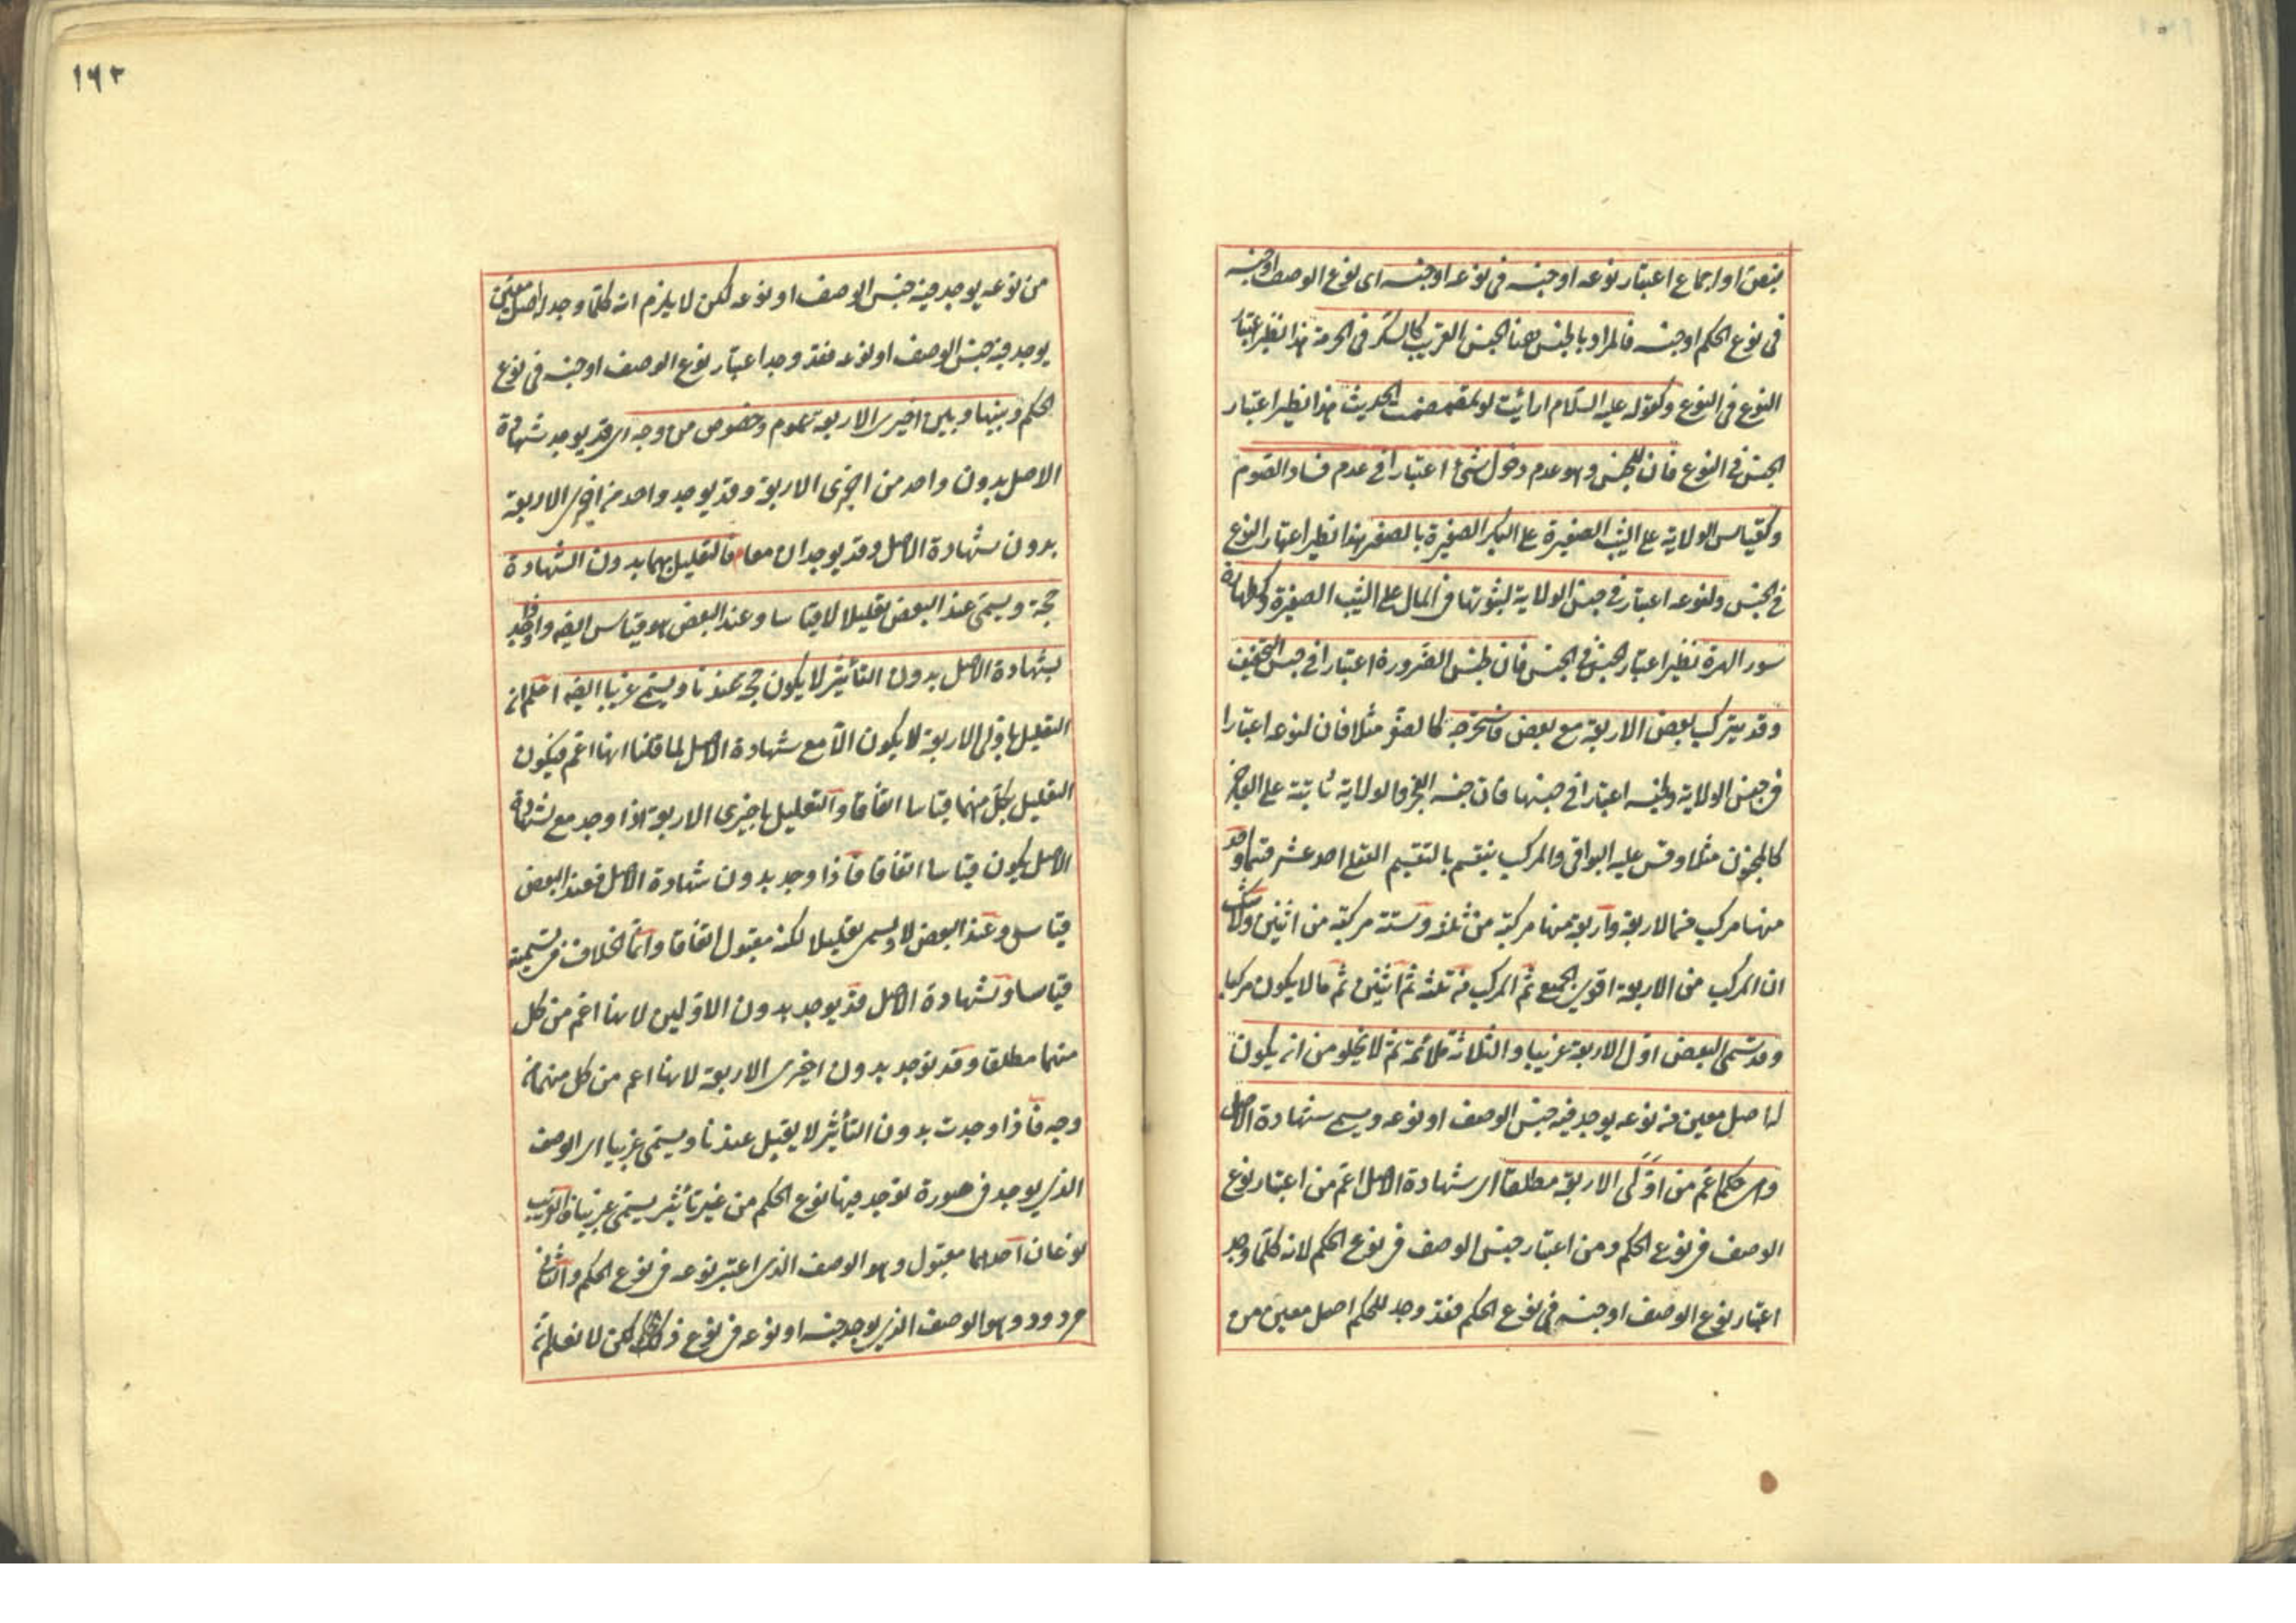 بنص او اجماع اعتبار نوعه او جنسه فى نوعه او جنسه اى نوع الوصف او جنسه
فى نوع الحكم او جنسه فالمراد بالجنس هنا الجنس القريب كالسكر فى الحرمة هذا نظير اعتبار
النوع فى النوع وكقوله عليه السلام ارأيت لو تمضمضت الحديث هذا نظير اعتبار
الجنس فى النوع فان للجنس وهو عدم دخول شئ اعتبارا فى عدم فساد الصوم
وكقياس الولاية على الثيب الصغيرة على البكر الصغيرة بالصغر هذا نظير اعتبار النوع
فى الجنس ولنوعه اعتبار فى جنس الولاية لثبوتها فى المال على الثيب الصغيرة وكطهارة
سور الهرة نظير اعتبار الجنس فى الجنس فان لجنس الضرورة اعتبارا فى جنس التخفيف
وقد يتركب بعض الاربعة مع بعض فاستخرجه كالصغر مثلا فان لنوعه اعتبارا
فى جنس الولاية ولجنسه اعتبارا فى جنسها فان جنسه العجز والولاية ثابتة على العاجز
كالمجنون مثلا وقس عليه البواقى والمركب ينقسم بالتقسيم العقلى احد عشر قسما واحد
منها مركب من الاربعة واربعة منها مركبة من ثلاثة وستة مركبة من اثنين ولا شك
ان المركب من الاربعة اقوى الجميع ثم المركب من ثلثة ثم اثنين ثم ما لا يكون مركبا
وقد تسمى البعض اول الاربعة غريبا والثلاثة ملائمة ثم لا يخلو من ان يكون
له اصل معين من نوعه يوجد فيه جنس الوصف او نوعه ويسمى شهادة الاصل
وهى كما اعم من اولى الاربعة مطلقا اى شهادة الاصل اعم من اعتبار نوع
الوصف فى نوع الحكم ومن اعتبار جنس الوصف فى نوع الحكم لانه كلما وجد
اعتبار نوع الوصف او جنسه فى نوع الحكم فقد وجد للحكم اصل معين من
١٦٢
من نوعه يوجد فيه جنس الوصف او نوعه لكن لا يلزم انه كلما وجد له اصل معين
يوجد فيه جنس الوصف او نوعه فقد وجد اعتبار نوع الوصف او جنسه فى نوع
الحكم وبينها وبين اخيرى الاربعة عموم وخصوص من وجه اى قد يوجد شهادة
الاصل بدون واحد من اخيرى الاربعة وقد يوجد واحد من اخيرى الاربعة
بدون شهادة الاصل وقد يوجدان معا فالتعليل بهما بدون الشهادة
حجة ويسمى عند البعض تعليلا لا قياسا وعند البعض هو قياس ايضه واذا وجد
بشهادة الاصل بدون التأثير لا يكون حجة عندنا ويسمى غريبا ايضه اعلم ان
التعليل باولى الاربعة لا يكون الا مع شهادة الاصل لما قلنا انها اعم فيكون
التعليل بكل منهما قياسا اتفاقا والتعليل باخيرى الاربعة اذا وجد مع شهادة
الاصل يكون قياسا اتفاقا فاذا وجد بدون شهادة الاصل فعند البعض
قياس وعند البعض لا ويسمى تعليلا لكنه مقبول اتفاقا وانما الخلاف فى تسميته
قياسا وشهادة الاصل قد يوجد بدون الاولين لانها اعم من كل
منهما مطلقا وقد توجد بدون اخيرى الاربعة لانها اعم من كل منهما من
وجه فاذا وجدت بدون التأثير لا يقبل عندنا ويسمى غريبا اى الوصف
الذى يوجد فى صورة توجد فيها نوع الحكم من غير تأثير يسمى غريبا فالغريب
نوعان احدهما مقبول وهو الوصف الذى اعتبر نوعه فى نوع الحكم والثانى
مردود وهو الوصف الذى يوجد جنسه او نوعه فى نوع ذلك لكن لا نعلم انه